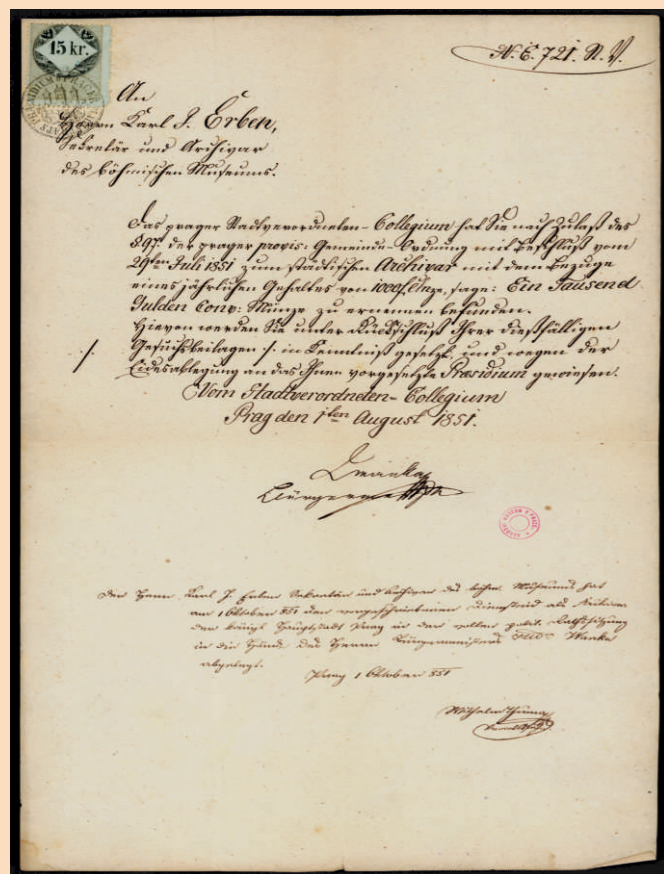 15 kr.
N. E. 721. St. V.
An
Herrn Karl J. Erben,
Sekretär und Archivar
des böhmischen Museums.
Das prager Stadtverordneten-Collegium hat Sie nach Zulaß des
§ 97. der prager provis: Gemeinde-Ordnung mit Beschluß vom
29ten Juli 1851 zum städtischen Archivar mit dem Bezuge
eines jährlichen Gehaltes von 1000f. CMze, sage: Ein Tausend
Gulden Conv: Münze zu ernennen befunden.
Hievon werden Sie unter Rückschluß Ihrer dießfälligen
Gesuchsbeilagen ·/. in Kenntniß gesetzt, und wegen der
·/.
Eidesablegung an das Ihnen vorgesetzte Præsidium gewiesen.
Vom Stadtverordneten-Collegium
Prag den 1ten August 1851.
Bürgermeister
Der Herr Karl J. Erben Sekretär und Archivar des böhm. Museums hat
am 1 Oktober 851 den vorgeschriebenen Diensteid als Archivar
der königl Hauptstadt Prag in der vollen polit. Rathssitzung
in die Hände des Herrn Bürgermeisters Wanka
abgelegt.
Prag 1 Oktober 851
Wilhelm